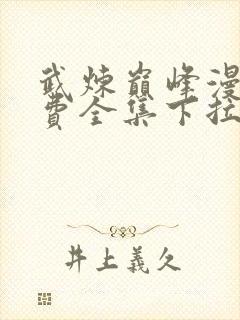 武炼巅峰漫
费全集下拉
井上義久